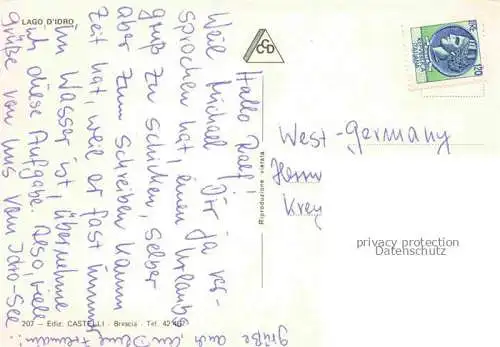 LAGO D'IDRO
CCD
Hallo Ralf!
Weil Michael Dir ja ver-
sprochen hat, einen Urlaubs
gruß zu schicken, selber
aber zum Schreiben kaum
Zeit hat, weil er fast immer
im Wasser ist, übernehme
ich diese Aufgabe. Also, viele
Grüße von uns vom Idro-See
Grüße auch an Deine
Riproduzione vietata
120
West-Germany
Herrn
Krey
privacy protection
Datenschutz
207 - Ediz. CASTELLI - Brescia - Tel. 42